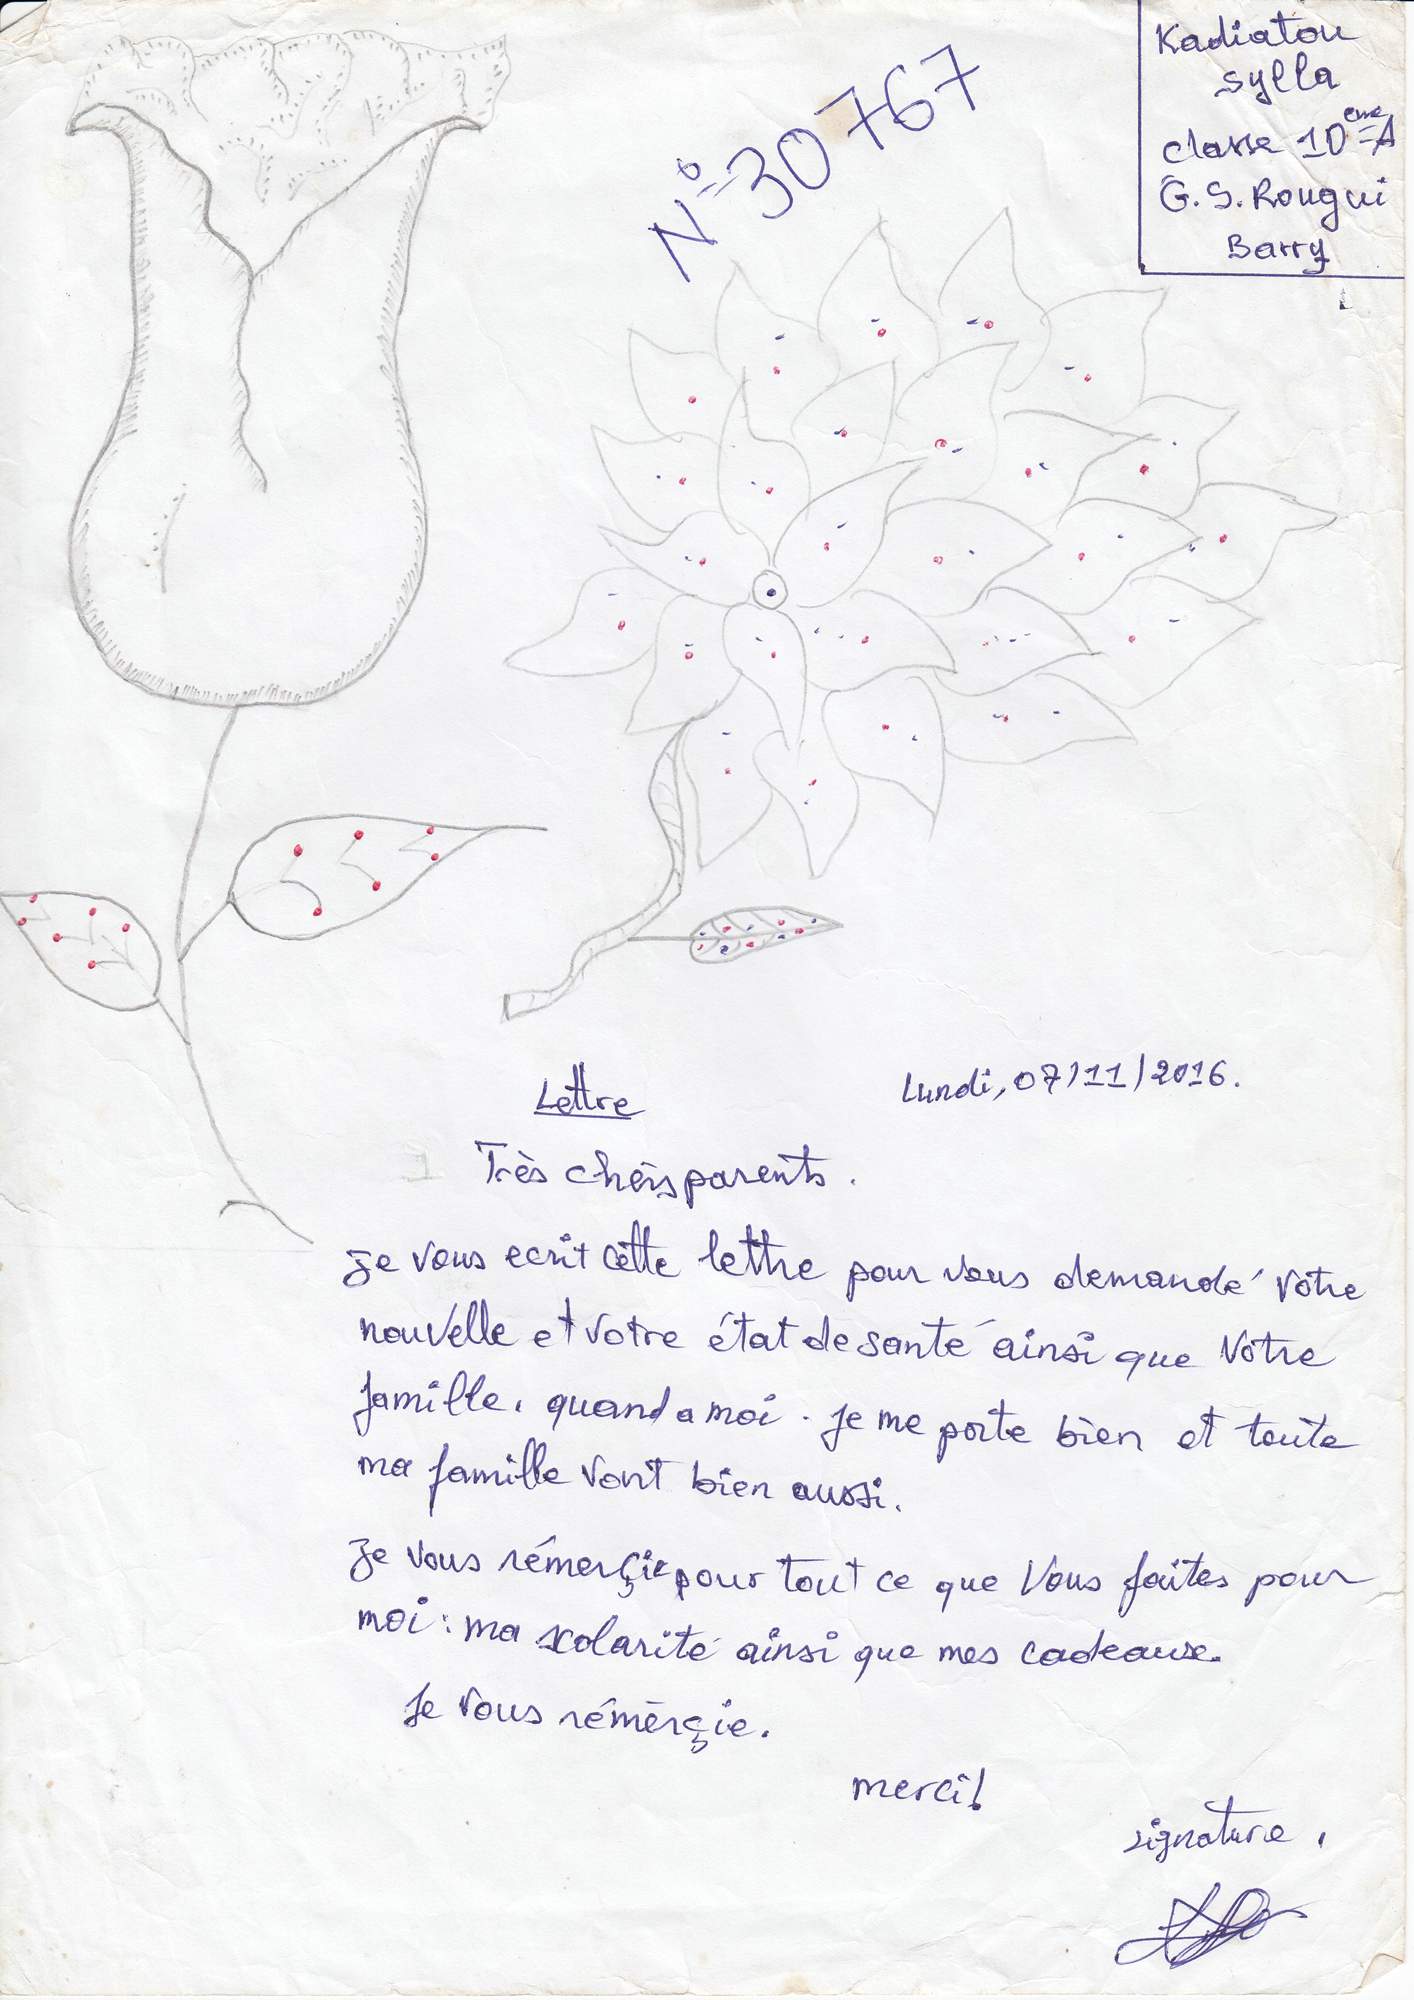 Kadiatou
Sylla
classe 10ème A
G.S. Rougui
Barry
N° 30767
Lettre
Lundi, 07/11/2016.
Très chérs parents.
Je vous ecrit cette lettre pour vous demandé votre
nouvelle et votre état de santé ainsi que votre
famille. quand a moi. Je me porte bien et toute
ma famille vont bien aussi.
Je vous rémerçie pour tout ce que vous faites pour
moi : ma scolarité ainsi que mes cadeaux.
Je vous rémerçie.
merci!
signature.